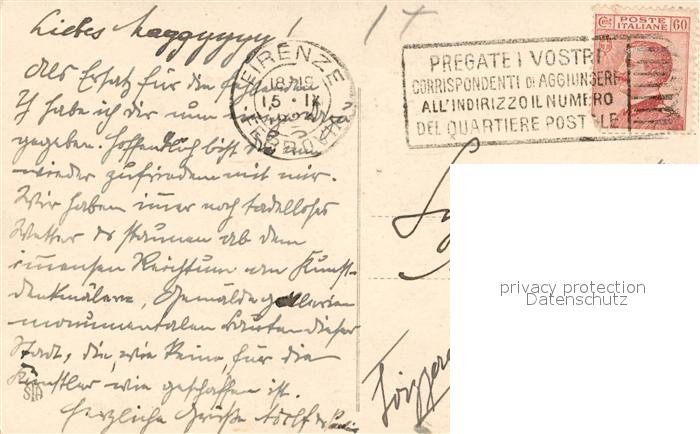 Liebes Maggyyyyy!
Als Ersatz für den fehlenden
Y habe ich dir nun
gegeben. Hoffentlich bist du nun
wieder zufrieden mit mir.
Wir haben immer noch tadelloses
Wetter & staunen ab dem
immensen Reichtum an Kunst-
denkmälern, Gemäldegallerien
monumentalen Bauten dieser
Stadt, die, wie keine, für die
Künstler wie geschaffen ist.
Herzliche Grüße Adolf &
FIRENZE
FERROVIA
POSTE
ITALIANE
60
PREGATE I VOSTRI
CORRISPONDENTI DI AGGIUNGERE
ALL'INDIRIZZO IL NUMERO
DEL QUARTIERE POSTALE
privacy protection
Datenschutz
STA